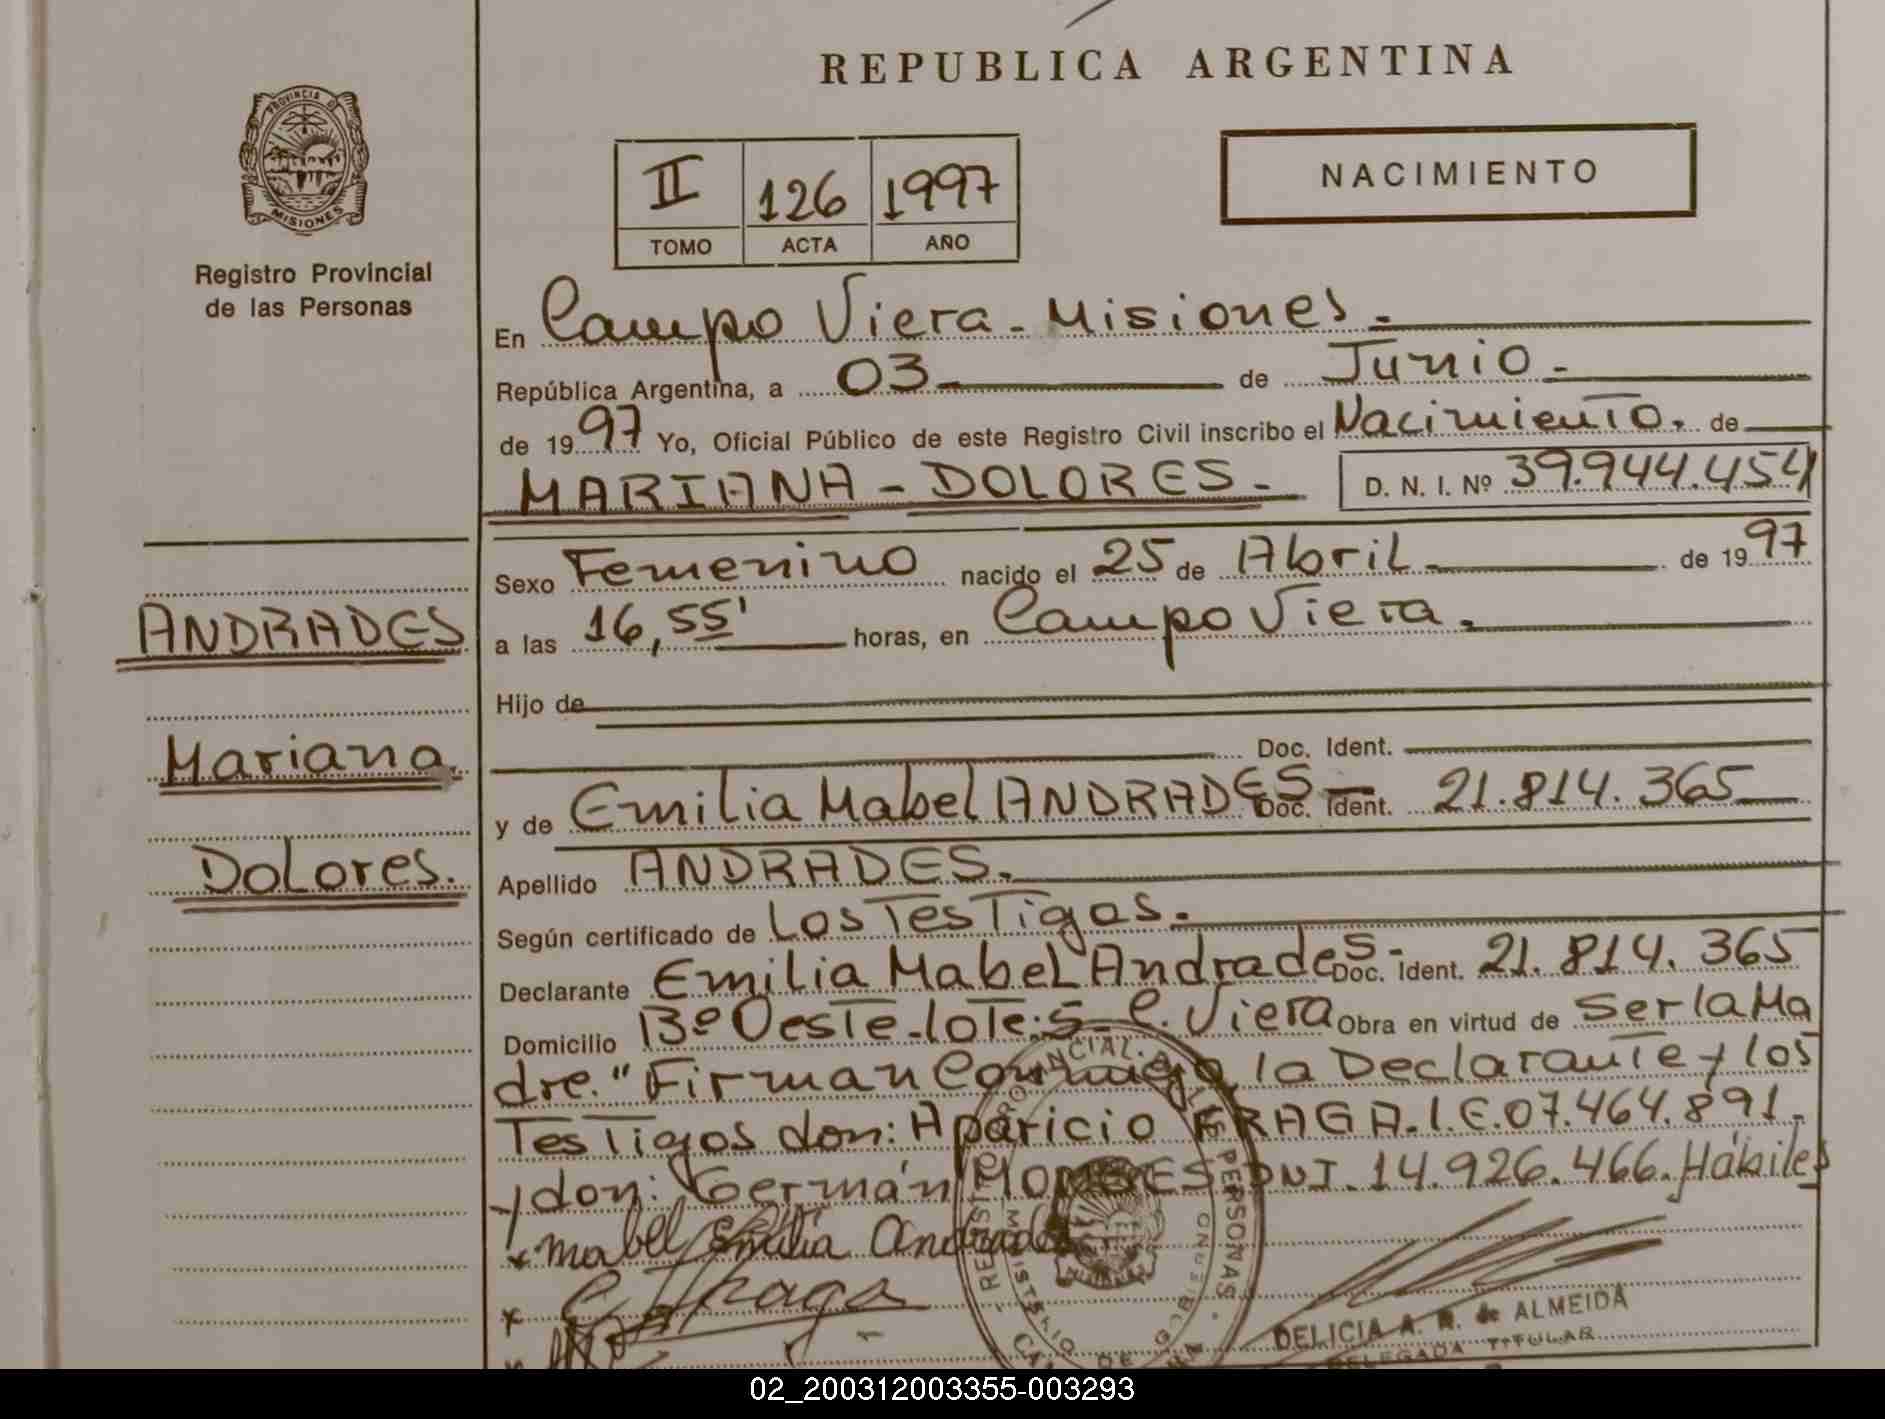 REPUBLICA ARGENTINA
PROVINCIA D
MISIONES
Registro Provincial
de las Personas
II 126 1997
TOMO ACTA AÑO
NACIMIENTO
En Campo Viera - Misiones.-
República Argentina, a 03 de Junio.-
de 1997 Yo, Oficial Público de este Registro Civil inscribo el Nacimiento. de
MARIANA - DOLORES.- D. N. I. Nº 39.944.454
Sexo Femenino nacido el 25 de Abril.- de 1997
a las 16,55' horas, en Campo Viera.
Hijo de
Doc. Ident.
y de Emilia Mabel ANDRADES.- Doc. Ident. 21.814.365
Apellido ANDRADES.
Según certificado de Los Testigos.
Declarante Emilia Mabel Andrades.- Doc. Ident. 21.814.365
Domicilio 13º Oeste-lote:5- C. Viera Obra en virtud de Ser la Ma
dre." Firman Conmigo la Declarante y los
Testigos don: Aparicio FRAGA. I.E.07.464.891.-
y don: Germán DNI. 14.926.466. Hábiles
x mabel Emilia Andrades
x Fraga
DELICIA A. R. de ALMEIDA
DELEGADA TITULAR
ANDRADES
Mariana
Dolores.
REGISTRO PROVINCIAL DE LAS PERSONAS
MINISTERIO DE GOBIERNO
MISIONES
02_200312003355-003293